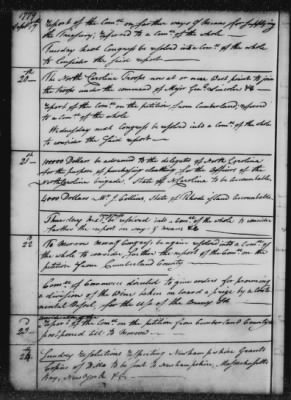 1779
Sept 17
Report of the Comee. on further ways & means for supplying
the Treasury; referred to a Comee. of the whole
Tuesday next Congress be resolved into a Come. of the whole
to consider the said report
20th
The North Carolina Troops now at or near West point to join
the troops under the command of Major Genl. Lincoln &c
Report of the Come. on the petition from Cumberland, referred
to a Come. of the whole
Wednesday next Congress be resolved into a Come. of the whole
to consider the said report.
21st
10000 Dollars be advanced to the delegates of North Carolina
for the purpose of purchasing cloathing for the Officers of the
North Carolina brigade; State of N Carolina to be accountable
4000 Dollars Mr. J Collins, State of Rhode Island accountable
resolved into a Come. of the whole to consider
further the report on ways & means &c
22
To Morrow Congress be again resolved into a Come. of
the whole to consider further the report of the Come. on the
petition from Cumberland County
Come. of Commerce directed to give orders for procuring
a division of the Wine taken on board a prize by a Conti-
nental Vessel, for the use of the Army &c
23
Report of the Come. on the petition from Cumberland County
postponed till to Morrow
24
Sundry Resolutions respecting Newhampshire Grants
Copies of Ditto to be sent to Newhampshire, Massachusetts
Bay, New York &c